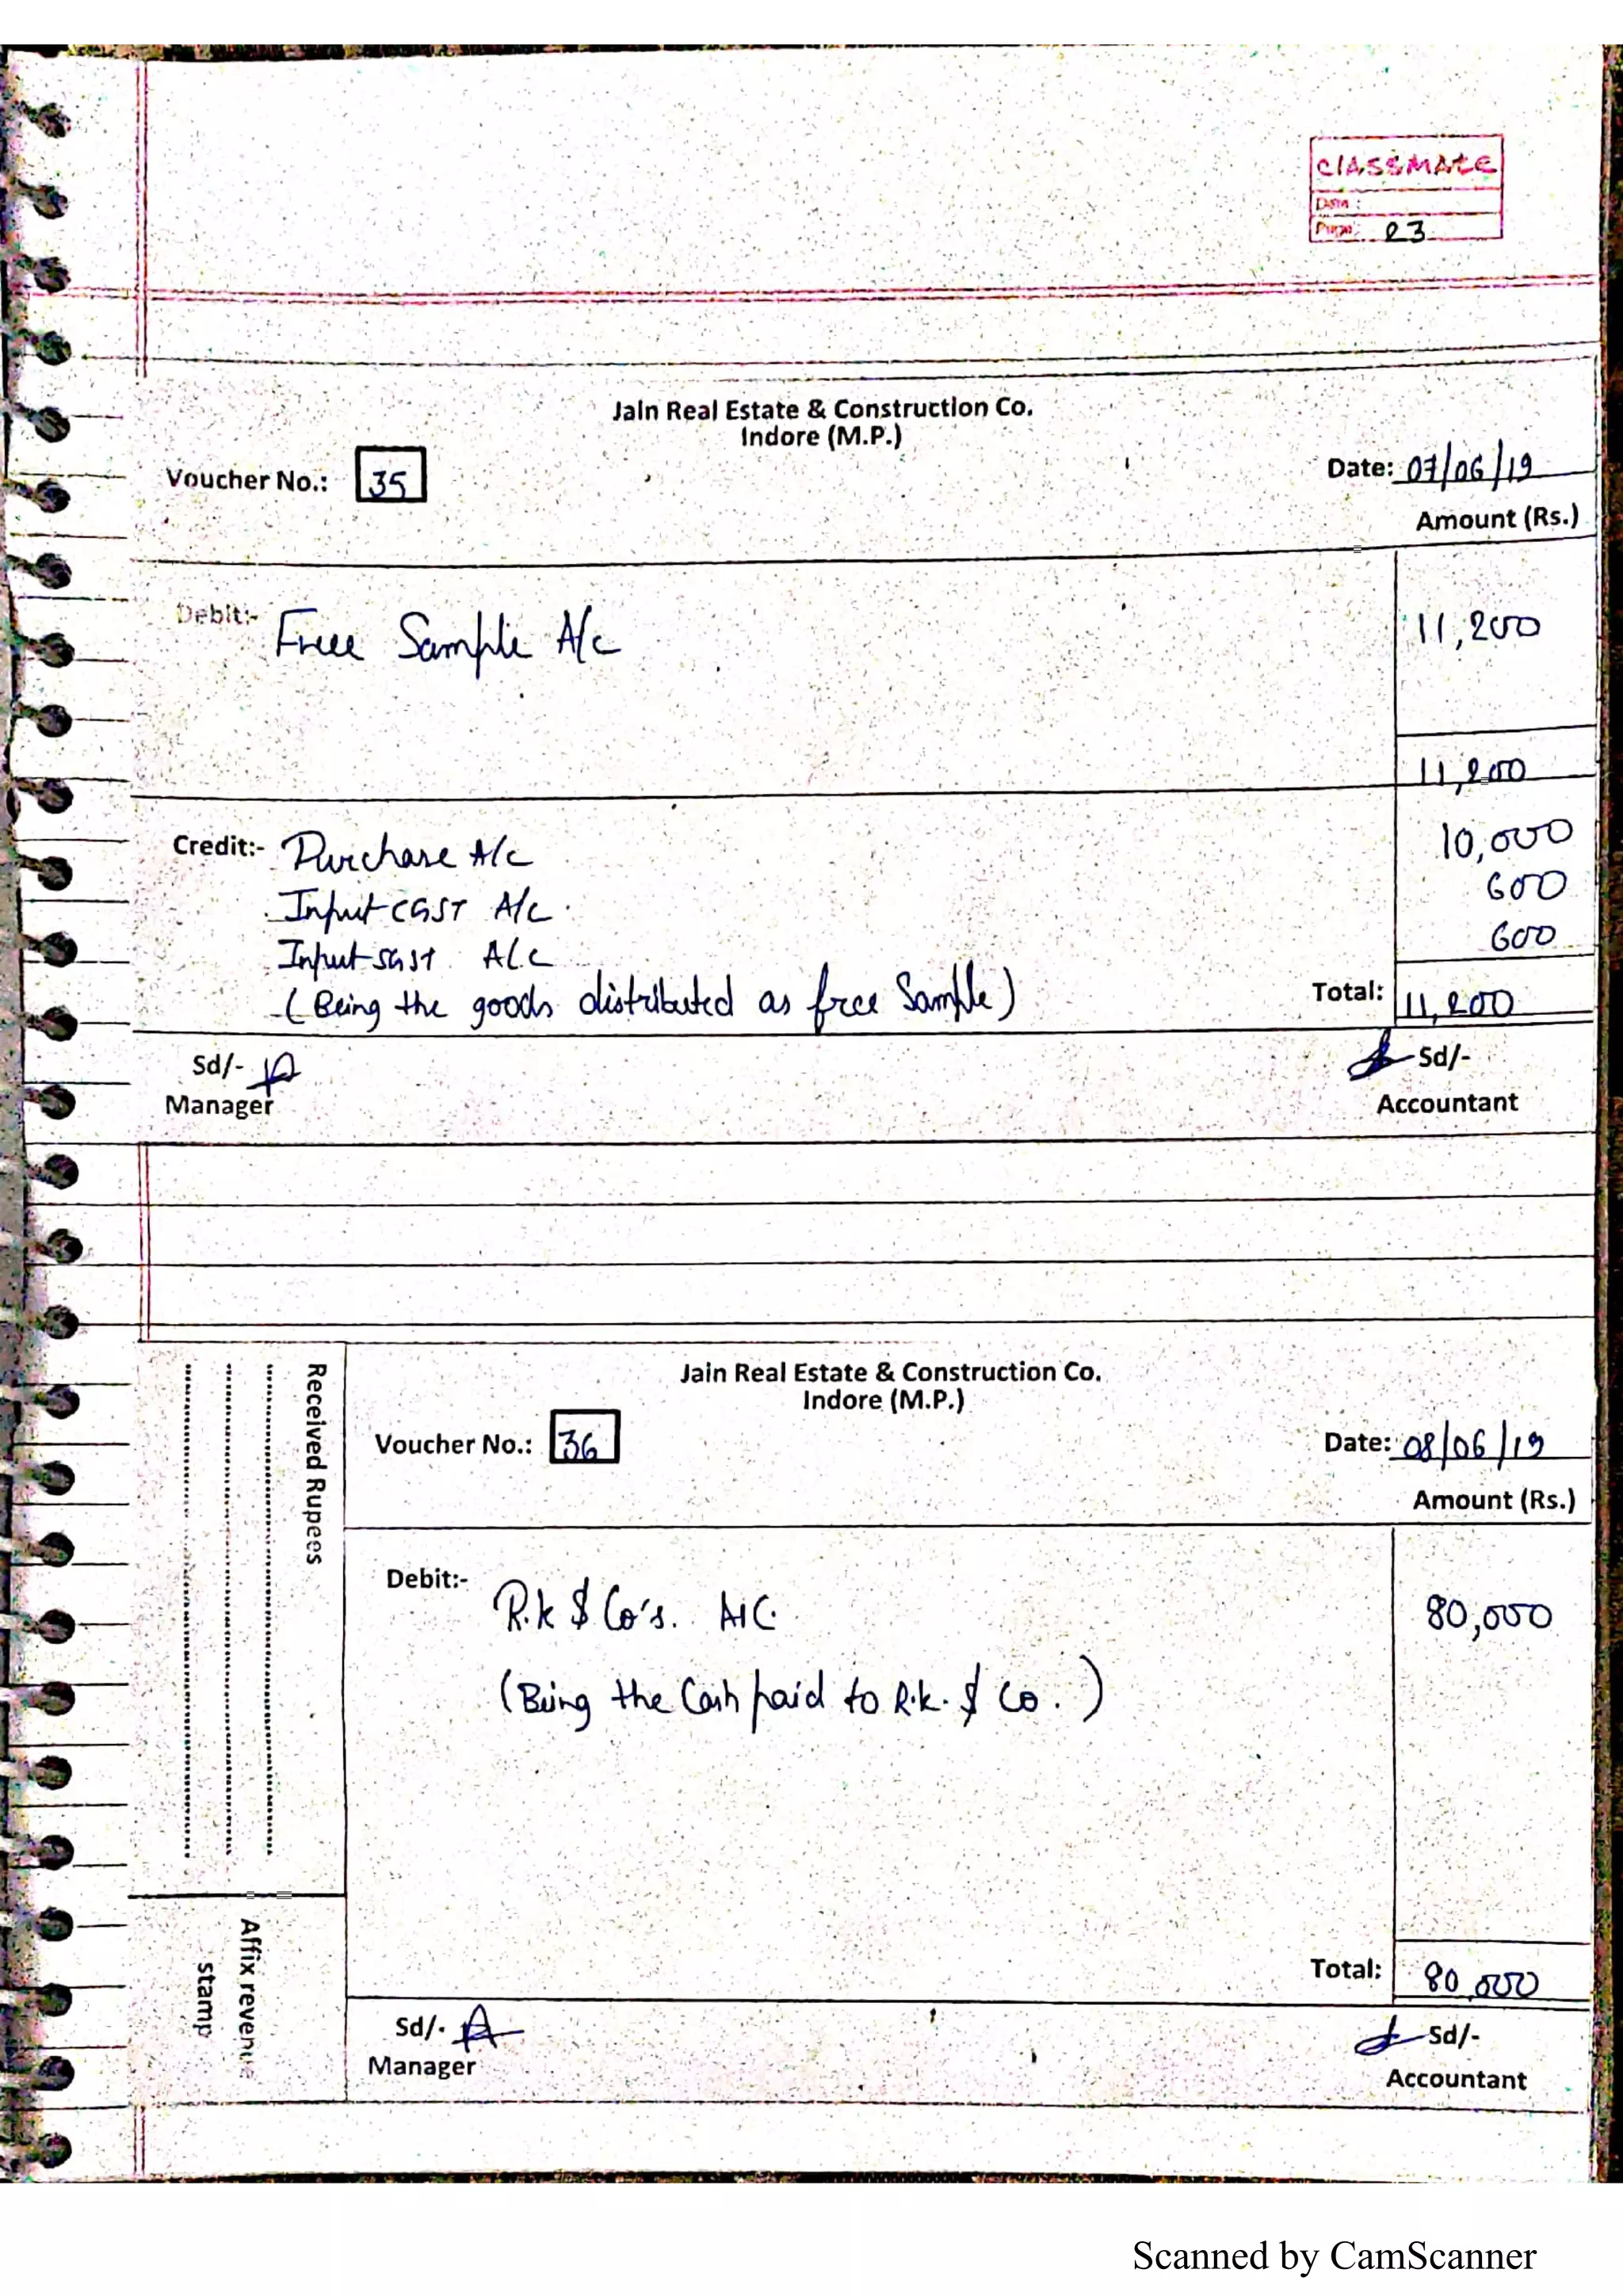 classmate
Date :
Page : 23
Jain Real Estate & Construction Co.
Indore (M.P.)
Voucher No.: 35
Date: 07/06/19
Amount (Rs.)
Debit:- Free Sample A/c 11,200
11,200
Credit:- Purchase A/c 10,000
Input CGST A/c. 600
Input SGST A/c 600
(Being the goods distributed as free Sample)
Total: 11,200
Sd/-
Manager
Sd/-
Accountant
Received Rupees
Affix revenue
stamp
Jain Real Estate & Construction Co.
Indore (M.P.)
Voucher No.: 36
Date: 08/06/19
Amount (Rs.)
Debit:- R.K & Co's. A/C. 80,000
(Being the Cash paid to R.K. & Co.)
Total: 80,000
Sd/-
Manager
Sd/-
Accountant
Scanned by CamScanner